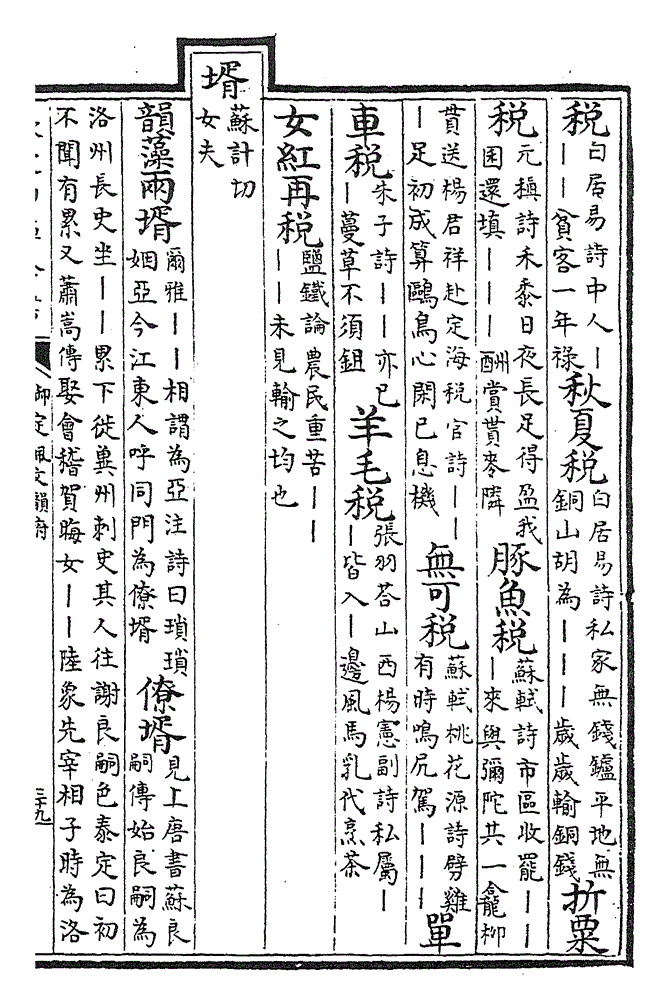 税白居易詩中人丨丨丨貧客一年禄秋夏税白居易詩私家無錢鑪平地無銅山胡為丨丨丨歳歳輸銅錢折粟
税元稹詩禾黍日夜長足得盈我囷還填丨丨丨酬賞貰麥隣豚魚税蘇軾詩市區收罷丨丨丨來與彌陀共一龕柳
貫送楊君祥赴定海税官詩丨丨丨足初成算鷗鳥心閑已息機無可税蘇軾桃花源詩劈雞有時鳴尻駕丨丨丨單
車税朱子詩丨丨亦已丨蔓草不須鉏羊毛税張羽荅山西楊憲副詩私屬丨丨皆入丨邊風馬乳代烹茶
女紅再税鹽鐵論農民重苦丨丨丨丨未見輸之均也
壻蘇計切女夫
韻藻兩壻爾雅丨丨相謂為亞注詩曰瑣瑣姻亞今江東人呼同門為僚壻僚壻見上唐書蘇良嗣傳始良嗣為
洛州長史坐丨丨累下徙冀州刺史其人往謝良嗣色泰定曰初
不聞有累又蕭嵩傳娶會稽賀晦女丨丨陸象先宰相子時為洛
御定佩文韻府
三十九